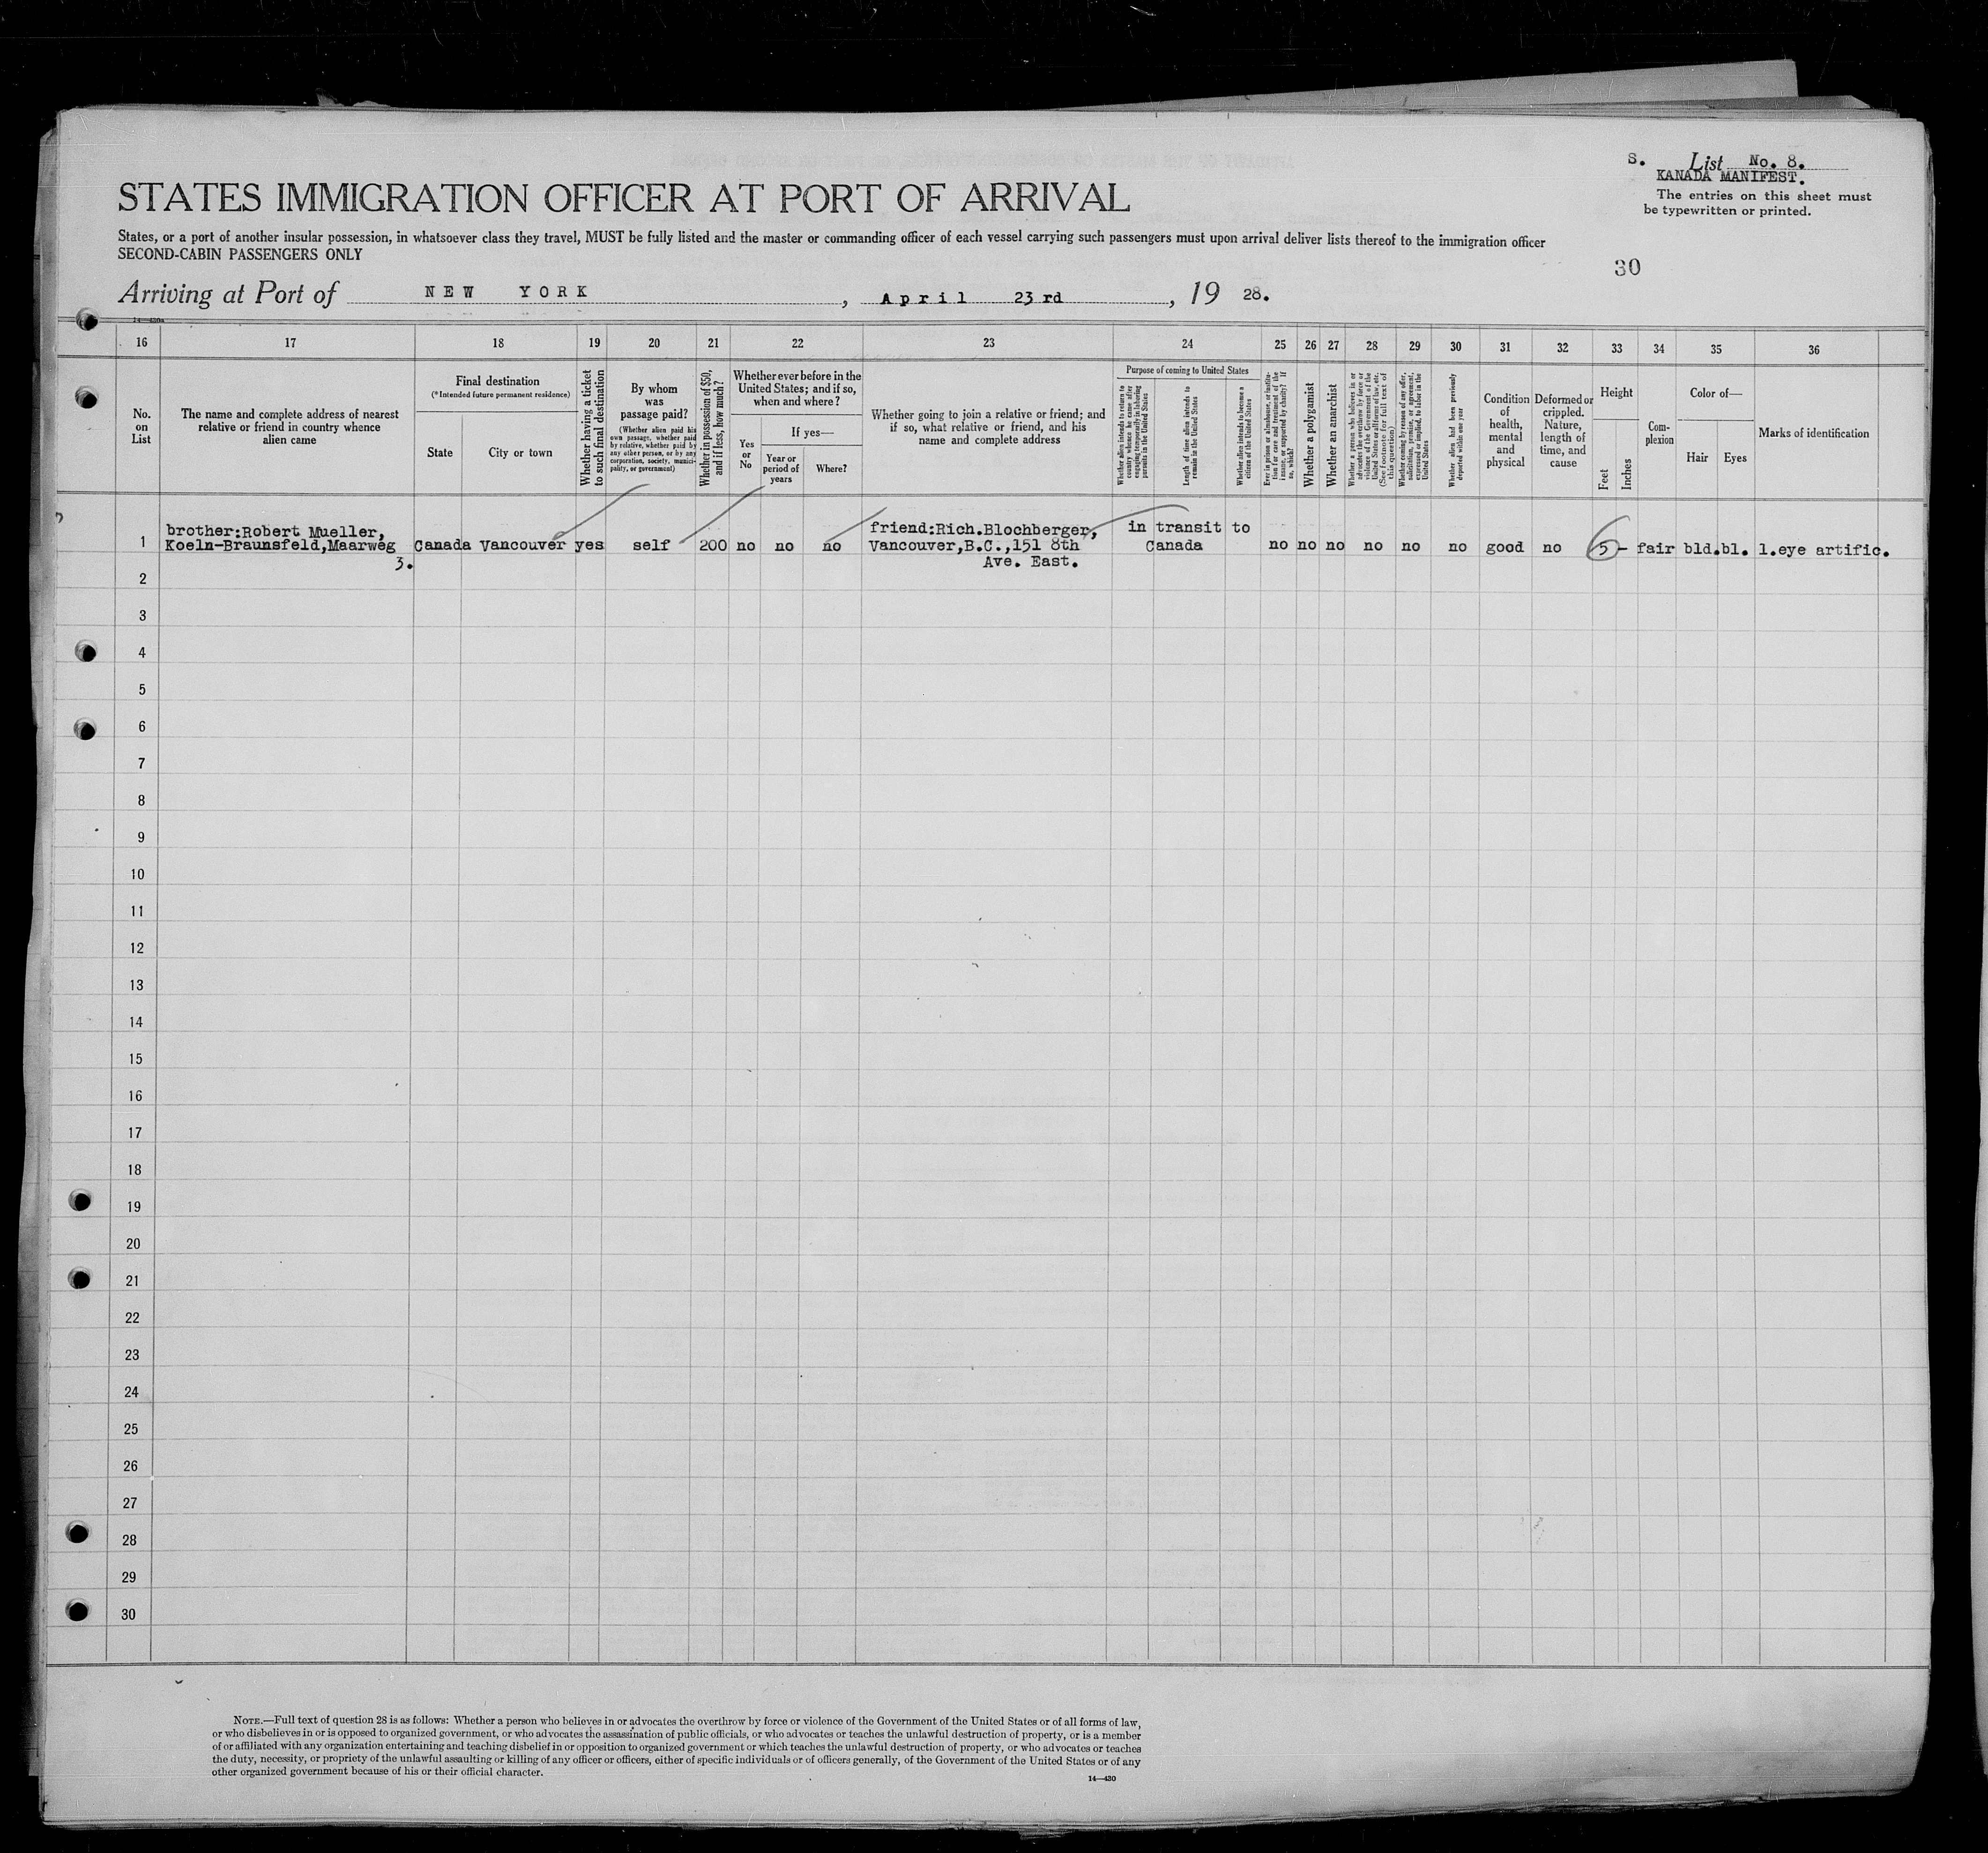 S. List No. 8.
KANADA MANIFEST.
The entries on this sheet must
be typewritten or printed.
STATES IMMIGRATION OFFICER AT PORT OF ARRIVAL
States, or a port of another insular possession, in whatsoever class they travel, MUST be fully listed and the master or commanding officer of each vessel carrying such passengers must upon arrival deliver lists thereof to the immigration officer
SECOND-CABIN PASSENGERS ONLY
30
Arriving at Port of NEW YORK, April 23rd, 19 28.
16 17 18 19 20 21 22 23 24 25 26 27 28 29 30 31 32 33 34 35 36
No. on List
The name and complete address of nearest
relative or friend in country whence
alien came
Final destination
(*Intended future permanent residence)
State
City or town
Whether having a ticket
to such final destination
By whom
was
passage paid?
(Whether alien paid his
own passage, whether paid
by relative, whether paid by
any other person, or by any
corporation, society, munici-
pality, or government)
Whether in possession of $50,
and if less, how much?
Whether ever before in the
United States; and if so,
when and where?
Yes
or
No
If yes—
Year or
period of
years
Where?
Whether going to join a relative or friend; and
if so, what relative or friend, and his
name and complete address
Purpose of coming to United States
Whether alien intends to return to
country whence he came after
engaging temporarily in laboring
pursuits in the United States
Length of time alien intends to
remain in the United States
Whether alien intends to become a
citizen of the United States
Ever in prison or almshouse, or institu-
tion for care and treatment of the
insane, or supported by charity? If
so, which?
Whether a polygamist
Whether an anarchist
Whether a person who believes in or
advocates the overthrow by force or
violence of the Government of the
United States or all forms of law, etc.
(See footnote for full text of
this question)
Whether coming by reason of any offer,
solicitation, promise, or agreement,
expressed or implied, to labor in the
United States
Whether alien had been previously
deported within one year
Condition
of
health,
mental
and
physical
Deformed or
crippled.
Nature,
length of
time, and
cause
Height
Feet
Inches
Com-
plexion
Color of—
Hair
Eyes
Marks of identification
brother:Robert Mueller, friend:Rich.Blochberger, in transit to
1 Koeln-Braunsfeld,Maarweg Canada Vancouver yes self 200 no no no Vancouver,B.C.,151 8th Canada no no no no no no good no 5 - fair bld. bl. l.eye artific.
3. Ave. East.
2
3
4
5
6
7
8
9
10
11
12
13
14
15
16
17
18
19
20
21
22
23
24
25
26
27
28
29
30
NOTE.—Full text of question 28 is as follows: Whether a person who believes in or advocates the overthrow by force or violence of the Government of the United States or of all forms of law,
or who disbelieves in or is opposed to organized government, or who advocates the assassination of public officials, or who advocates or teaches the unlawful destruction of property, or is a member
of or affiliated with any organization entertaining and teaching disbelief in or opposition to organized government or which teaches the unlawful destruction of property, or who advocates or teaches
the duty, necessity, or propriety of the unlawful assaulting or killing of any officer or officers, either of specific individuals or of officers generally, of the Government of the United States or of any
other organized government because of his or their official character.
14—430